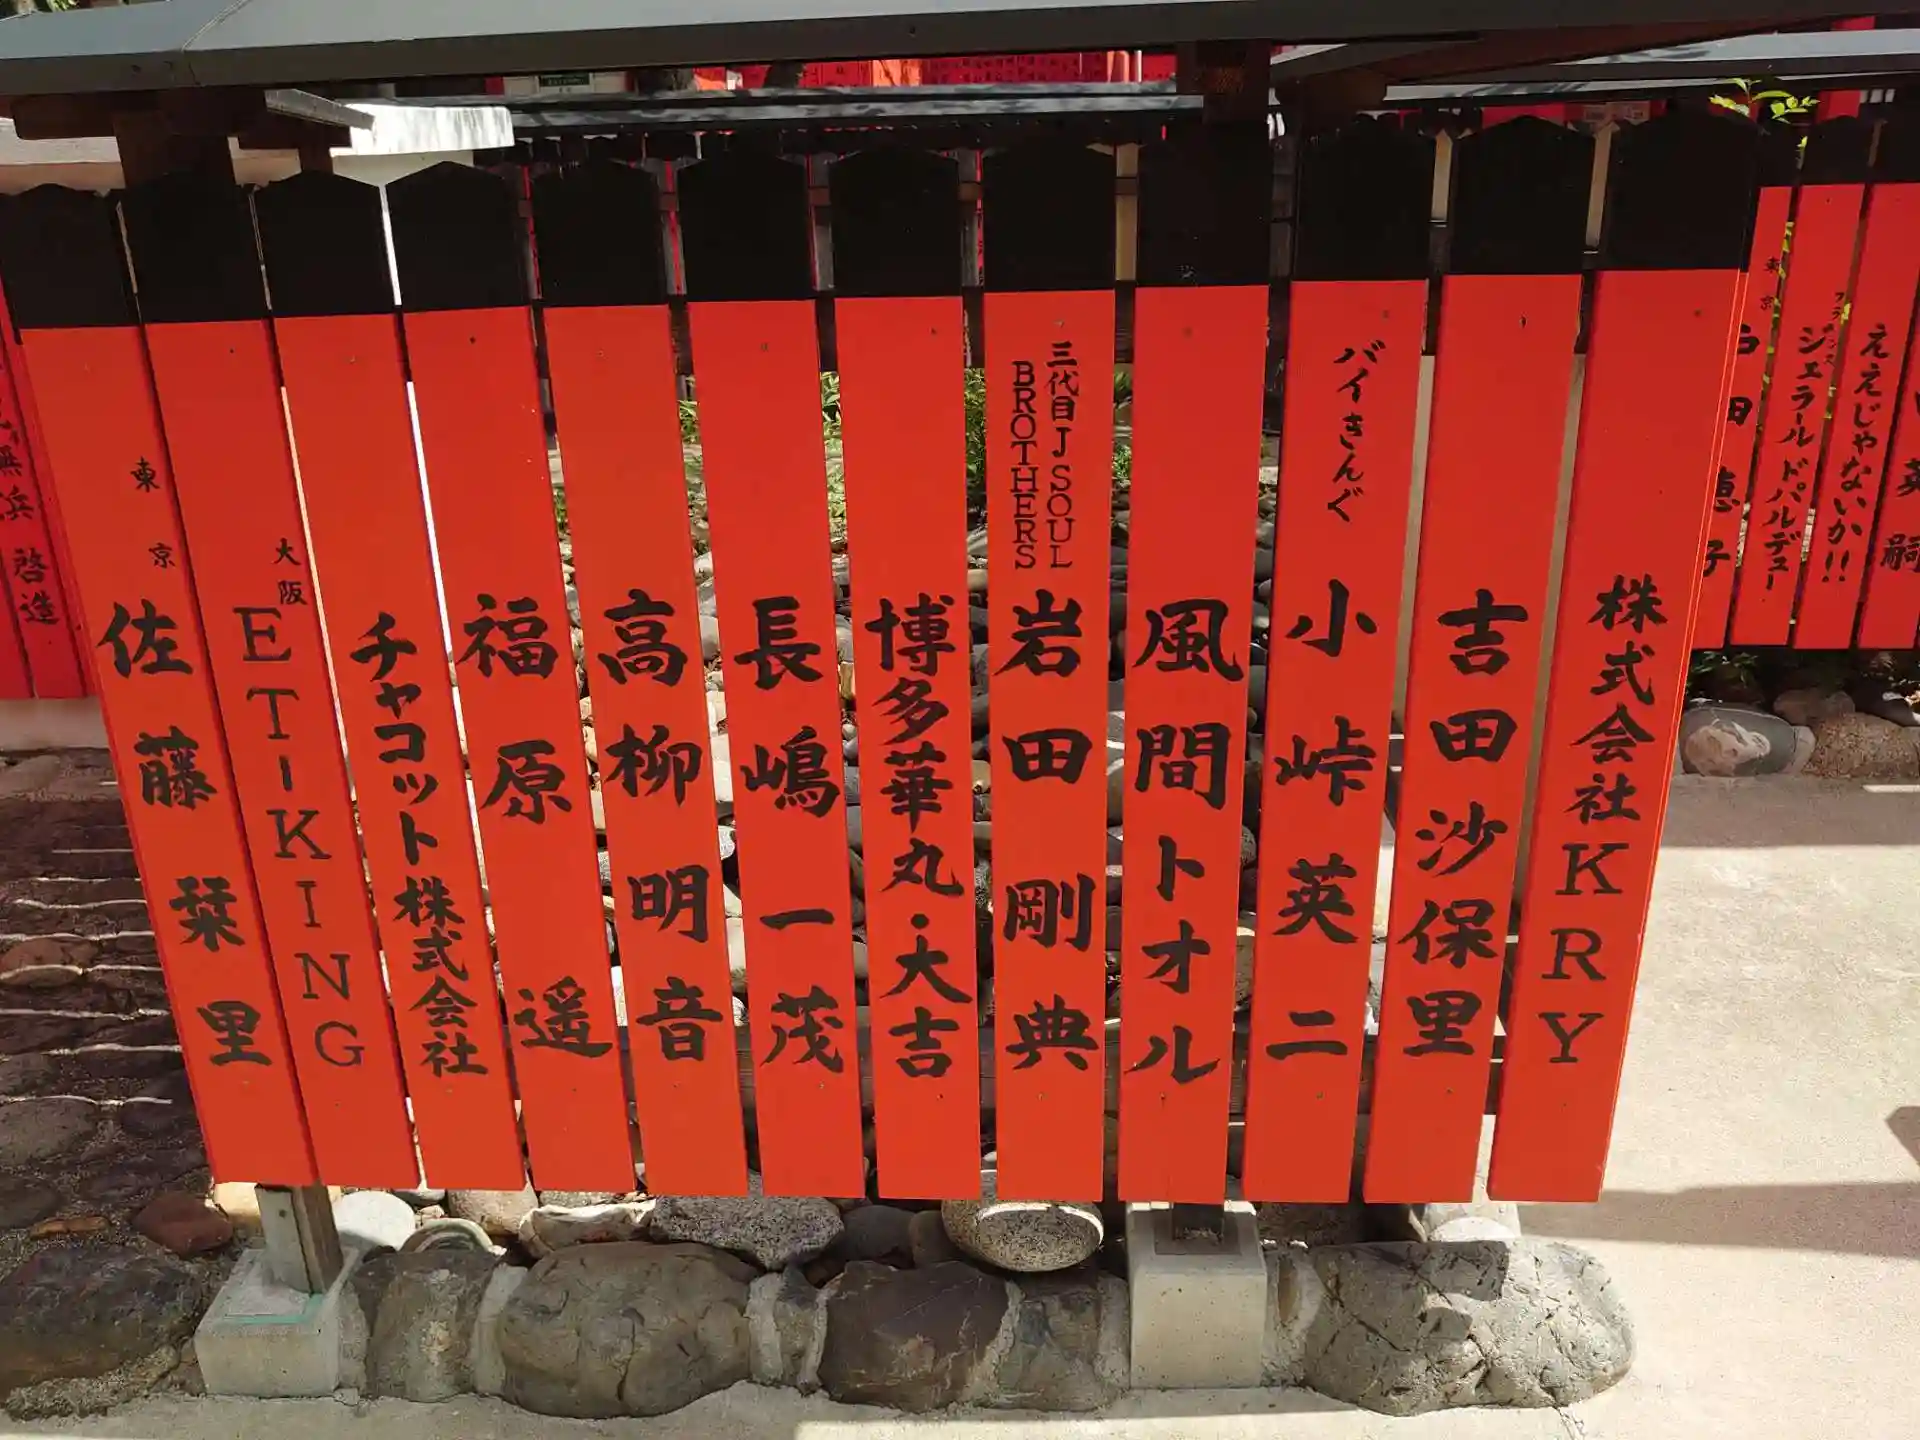 英嗣
ええじゃないか!!
フランス
ジェラールドパルデュー
東京
田恵子
株式会社KRY
吉田沙保里
バイきんぐ
小峠英二
風間トオル
三代目J SOUL
BROTHERS
岩田剛典
博多華丸・大吉
長嶋一茂
高柳明音
福原遥
チャコット株式会社
大阪
ET-KING
東京
佐藤栞里
啓造